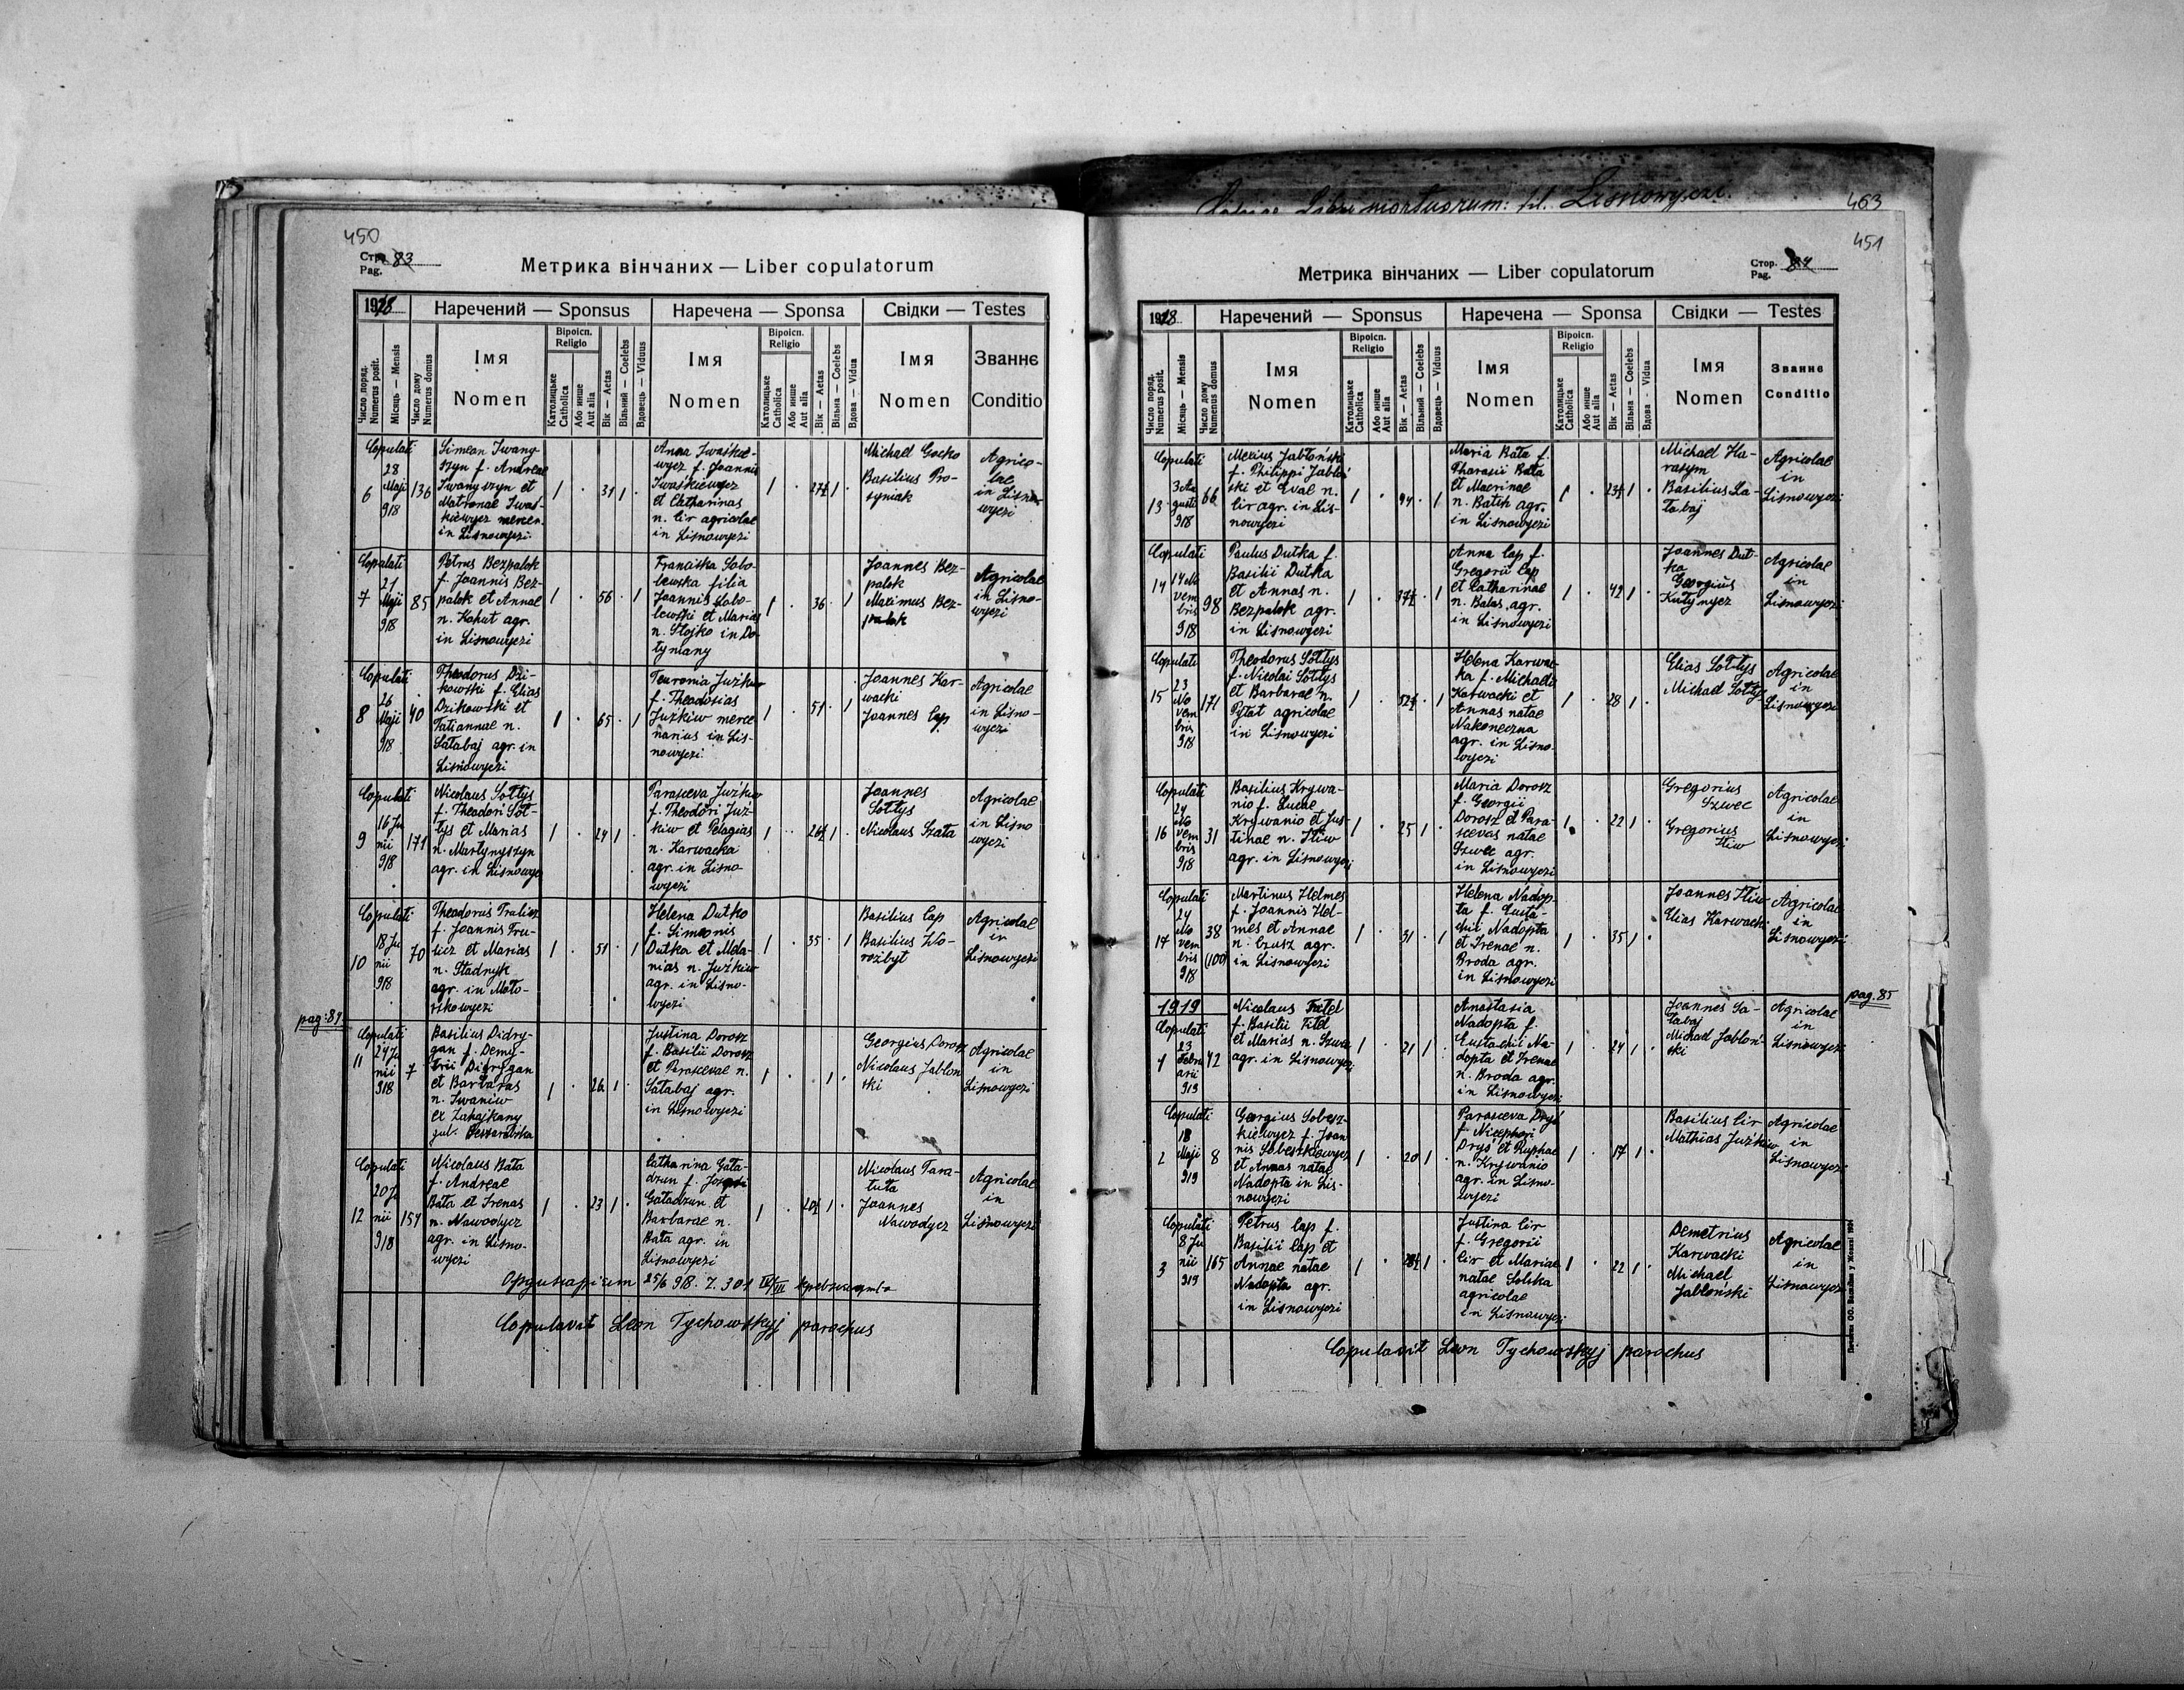 450
Стр. 83
Pag.
Метрика вінчаних — Liber copulatorum
1918
Наречений — Sponsus
Наречена — Sponsa
Свідки — Testes
Число поряд.
Numerus posit.
Місяць — Mensis
Число дому
Numerus domus
Імя
Nomen
Віроісп.
Religio
Католицьке
Catholica
Або инше
Aut alia
Вік — Aetas
Вільний — Coelebs
Вдовець — Viduus
Імя
Nomen
Віроісп.
Religio
Католицьке
Catholica
Або инше
Aut alia
Вік — Aetas
Вільна — Coelebs
Вдова — Vidua
Імя
Nomen
Званнє
Conditio
Copulati
6
28
Maji
918
136
Simeon Iwany-
szyn f. Andreae
Iwanyszyn et
Matronae Iwas-
kiewycz mercen.
in Lisnowyczi
1
31
1
Anna Iwaśkie-
wycz f. Joannis
Iwaśkiewycz
et Catharinas
n. Cir agricolae
in Lisnowyczi
1
27½
1
Michael Gocko
Basilius Pro-
syniak
Agrico-
lae
in Lisno-
wyczi
Copulati
7
21
Maji
918
85
Petrus Bezpalok
f. Joannis Bez-
palok et Annae
n. Kohut agr.
in Lisnowyczi
1
56
1
Franciska Sobo-
lewska filia
Joannis Sobo-
lewski et Marias
n. Stojko in Do-
tymany
1
36
1
Joannes Bez-
palok
Maximus Bez-
palok
Agricolae
in Lisno-
wyczi
Copulati
8
26
Maji
918
40
Theodorus Dzi-
kowski f. Elias
Dzikowski et
Tatiannae n.
Sałabaj agr. in
Lisnowyczi
1
65
1
f. Theodosias
Juzkiw merce
narius in Lis-
nowyczi
1
51
1
Joannes Kar-
wacki
Joannes Cap
Agricolae
in Lisno-
wyczi
Copulati
9
16 Ju
nii
918
171
Nicolaus Sołtys
f. Theodori Soł-
tys et Marias
n. Martynyszyn
agr. in Lisnowycz
1
24
1
Parasceva Juźkiw
f. Theodori Juź-
kiw et Pelagias
n. Karwacka
agr. in Lisno
wyczi
1
26½
1
Joannes
Sołtys
Nicolaus Szata
Agricolae
in Lisno
wyczi
Copulati
10
18 Ju
nii
918
70
Theodorus Tralicz
f. Joannis Tra-
licz et Marias
n. Stadnyk
agr. in Mało-
szkowyczi
1
51
1
Helena Dutko
f. Simeonis
Dutka et Mela-
nias n. Juźkiw
agr. in Lisno-
wyczi
1
35
1
Basilius Cap
Basilius Wo-
rożbyt
Agricolae
in
Lisnowyczi
pag: 84
Copulati
11
24 Ju
nii
918
7
Basilius Didry-
gan f. Demy-
trii Didrygan
et Barbaras
n. Iwaniw
ex Zahajkany
gub. Bessarabska
1
26
1
Justina Dorosz
f. Basilii Dorosz
et Parascevae n.
Sałabaj agr.
in Lisnowyczi
1
1
Georgius Dorosz
Nicolaus Jablon
ski
Agricolae
in
Lisnowyczi
Copulati
12
20 Ju
nii
918
154
Nicolaus Bała
f. Andreae
Bała et Irenas
n. Nawodycz
agr. in Lisno-
wyczi
1
23
1
Catharina Gała-
dzun f. Josephi
Gaładzun et
Barbarae n.
Bała agr. in
Lisnowyczi
1
20½
1
Nicolaus Tara-
tuta
Joannes
Nawodycz
Agricolae
in
Lisnowyczi
25/6 918. Z. 301
Copulavit Leon Tychowskyj parochus
Liber mortuorum: fil. Lisnowyczi.
463
451
Стор. 84
Pag.
Метрика вінчаних — Liber copulatorum
1918
Наречений — Sponsus
Наречена — Sponsa
Свідки — Testes
Число поряд.
Numerus posit.
Місяць — Mensis
Число дому
Numerus domus
Імя
Nomen
Віроісп.
Religio
Католицьке
Catholica
Або инше
Aut alia
Вік — Aetas
Вільний — Coelebs
Вдовець — Viduus
Імя
Nomen
Віроісп.
Religio
Католицьке
Catholica
Або инше
Aut alia
Вік — Aetas
Вільна — Coelebs
Вдова - Vidua
Імя
Nomen
Званнє
Conditio
Copulati
13
3 Au
gusti
918
66
Mexius Jabłoński
f. Philippi Jabłoń
ski et Evae n.
Cir agr. in Lis-
nowyczi
1
44
1
Maria Bała f.
Tharasii Bała
et Macrinae
n. Batch agr.
in Lisnowyczi
1
23½
1
Michael Ha-
rasym
Basilius Sa-
łabaj
Agricolae
in
Lisnowyczi
Copulati
14
14 No
vem
bris
918
98
Paulus Dutka f.
Basilii Dutka
et Annas n.
Bezpalok agr.
in Lisnowyczi
1
37½
1
Anna Cap f.
Gregorii Cap
et Catharinae
n. Balas, agr.
in Lisnowyczi
1
42
1
Joannes Dut-
ka
Georgius
Kutynycz
Agricolae
in
Lisnowyczi
Copulati
15
23
No
vem
bris
918
171
Theodorus Sołtys
f. Nicolai Sołtys
et Barbarae n.
Pytat agricolae
in Lisnowyczi
1
52½
1
Helena Karwac-
ka f. Michaelis
Karwacki et
Annas natae
Nakoneczna
agr. in Lisno-
wyczi
1
28
1
Elias Sołtys
Michael Sołtys
Agricolae
in
Lisnowyczi
Copulati
16
24
No
vem
bris
918
31
Basilius Krywa-
nio f. Lucae
Krywanio et Jus-
tinae n. Iliw
agr. in Lisnowyczi
1
25
1
Maria Dorosz
f. Georgii
Dorosz et Para-
scevas natae
Szwec agr.
in Lisnowyczi
1
22
1
Gregorius
Szwec
Gregorius
Iliw
Agricolae
in
Lisnowyczi
Copulati
17
24
No
vem
bris
918
38
(100)
Martinus Helmes
f. Joannis Hel-
mes et Annae
n. Crusz agr.
in Lisnowyczi
1
31
1
Helena Nadop-
ta f. Eusta-
chii Nadopta
et Irenae n.
Broda agr.
in Lisnowyczi
1
35
1
Joannes Iliw
Elias Karwacki
Agricolae
in
Lisnowyczi
pag. 85
1919
Copulati
1
23
Febru
arii
919
42
Nicolaus Fitel
f. Basilii Fitel
et Marias n. Szwec
agr. in Lisnowyczi
1
21
1
Anastasia
Nadopta f.
Eustachii Na-
dopta et Irenae
n. Broda agr.
in Lisnowyczi
1
24
1
Joannes Sa-
łabaj
Michael Jabłoń-
ski
Agricolae
in
Lisnowyczi
Copulati
2
18
Maji
919
8
Georgius Sobesz-
kiewycz f. Joan
nis Sobeszkiewycz
et Annas natae
Nadopta in Lis-
nowyczi
1
20
1
Parasceva Dryś
f. Nicephori
Dryś et Ruphae
n. Krywanio
agr. in Lisno-
wyczi
1
17
1
Basilius Cir
Mathias Juźkiw
Agricolae
in
Lisnowyczi
Copulati
3
8 Ju
nii
919
165
Petrus Cap f.
Basilii Cap et
Annae natae
Nadopta agr.
in Lisnowyczi
1
28½
1
Justina Cir
f. Gregorii
Cir et Mariae
natae Solska
agricolae
in Lisnowyczi
1
22
1
Demetrius
Karwacki
Michael
Jabłoński
Agricolae
in
Lisnowyczi
Copulavit Leon Tychowskyj parochus
Печатня ОО. Василіян у Жовкві